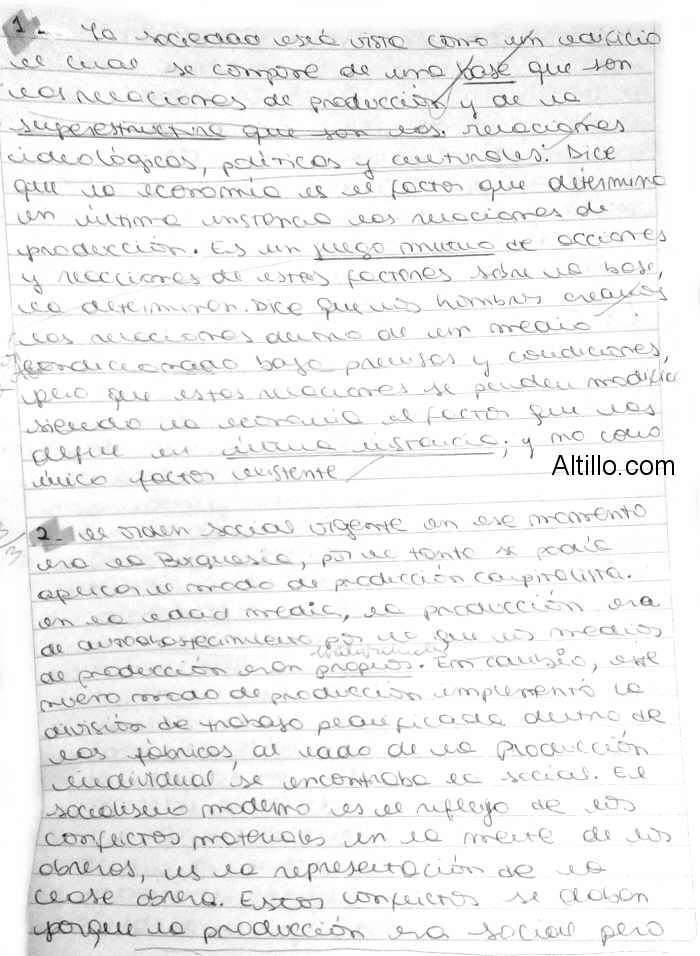 1- La sociedad está vista como un edificio
el cual se compone de una base que son
las relaciones de producción y de la
superestructura que son las relaciones
ideológicas, políticas y culturales. Dice
que la economía es el factor que determina
en última instancia las relaciones de
producción. Es un juego mutuo de acciones
y reacciones de estos factores sobre la base,
la determinan. Dice que los hombres creamos
las relaciones dentro de un medio
condicionado bajo premisas y condiciones,
pero que estas relaciones se pueden modificar
siendo la economía el factor que las
define en última instancia; y no como
único factor existente
Altillo.com
2- El orden social vigente en ese momento
era la Burguesía, por lo tanto se podía
aplicar el modo de producción capitalista.
En la edad media, la producción era
de autoabastecimiento por lo que los medios
individuales
de producción eran propios. En cambio, este
nuevo modo de producción implementó la
división de trabajo planificada dentro de
las fábricas, al lado de la producción
individual se encontraba la social. El
socialismo moderno es el reflejo de los
conflictos materiales en la mente de los
obreros, es la representación de la
clase obrera. Estos conflictos se daban
porque la producción era social pero